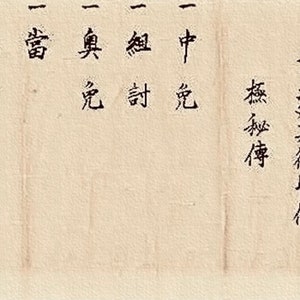 極秘傳
一中免
一組討
一奥免
一當